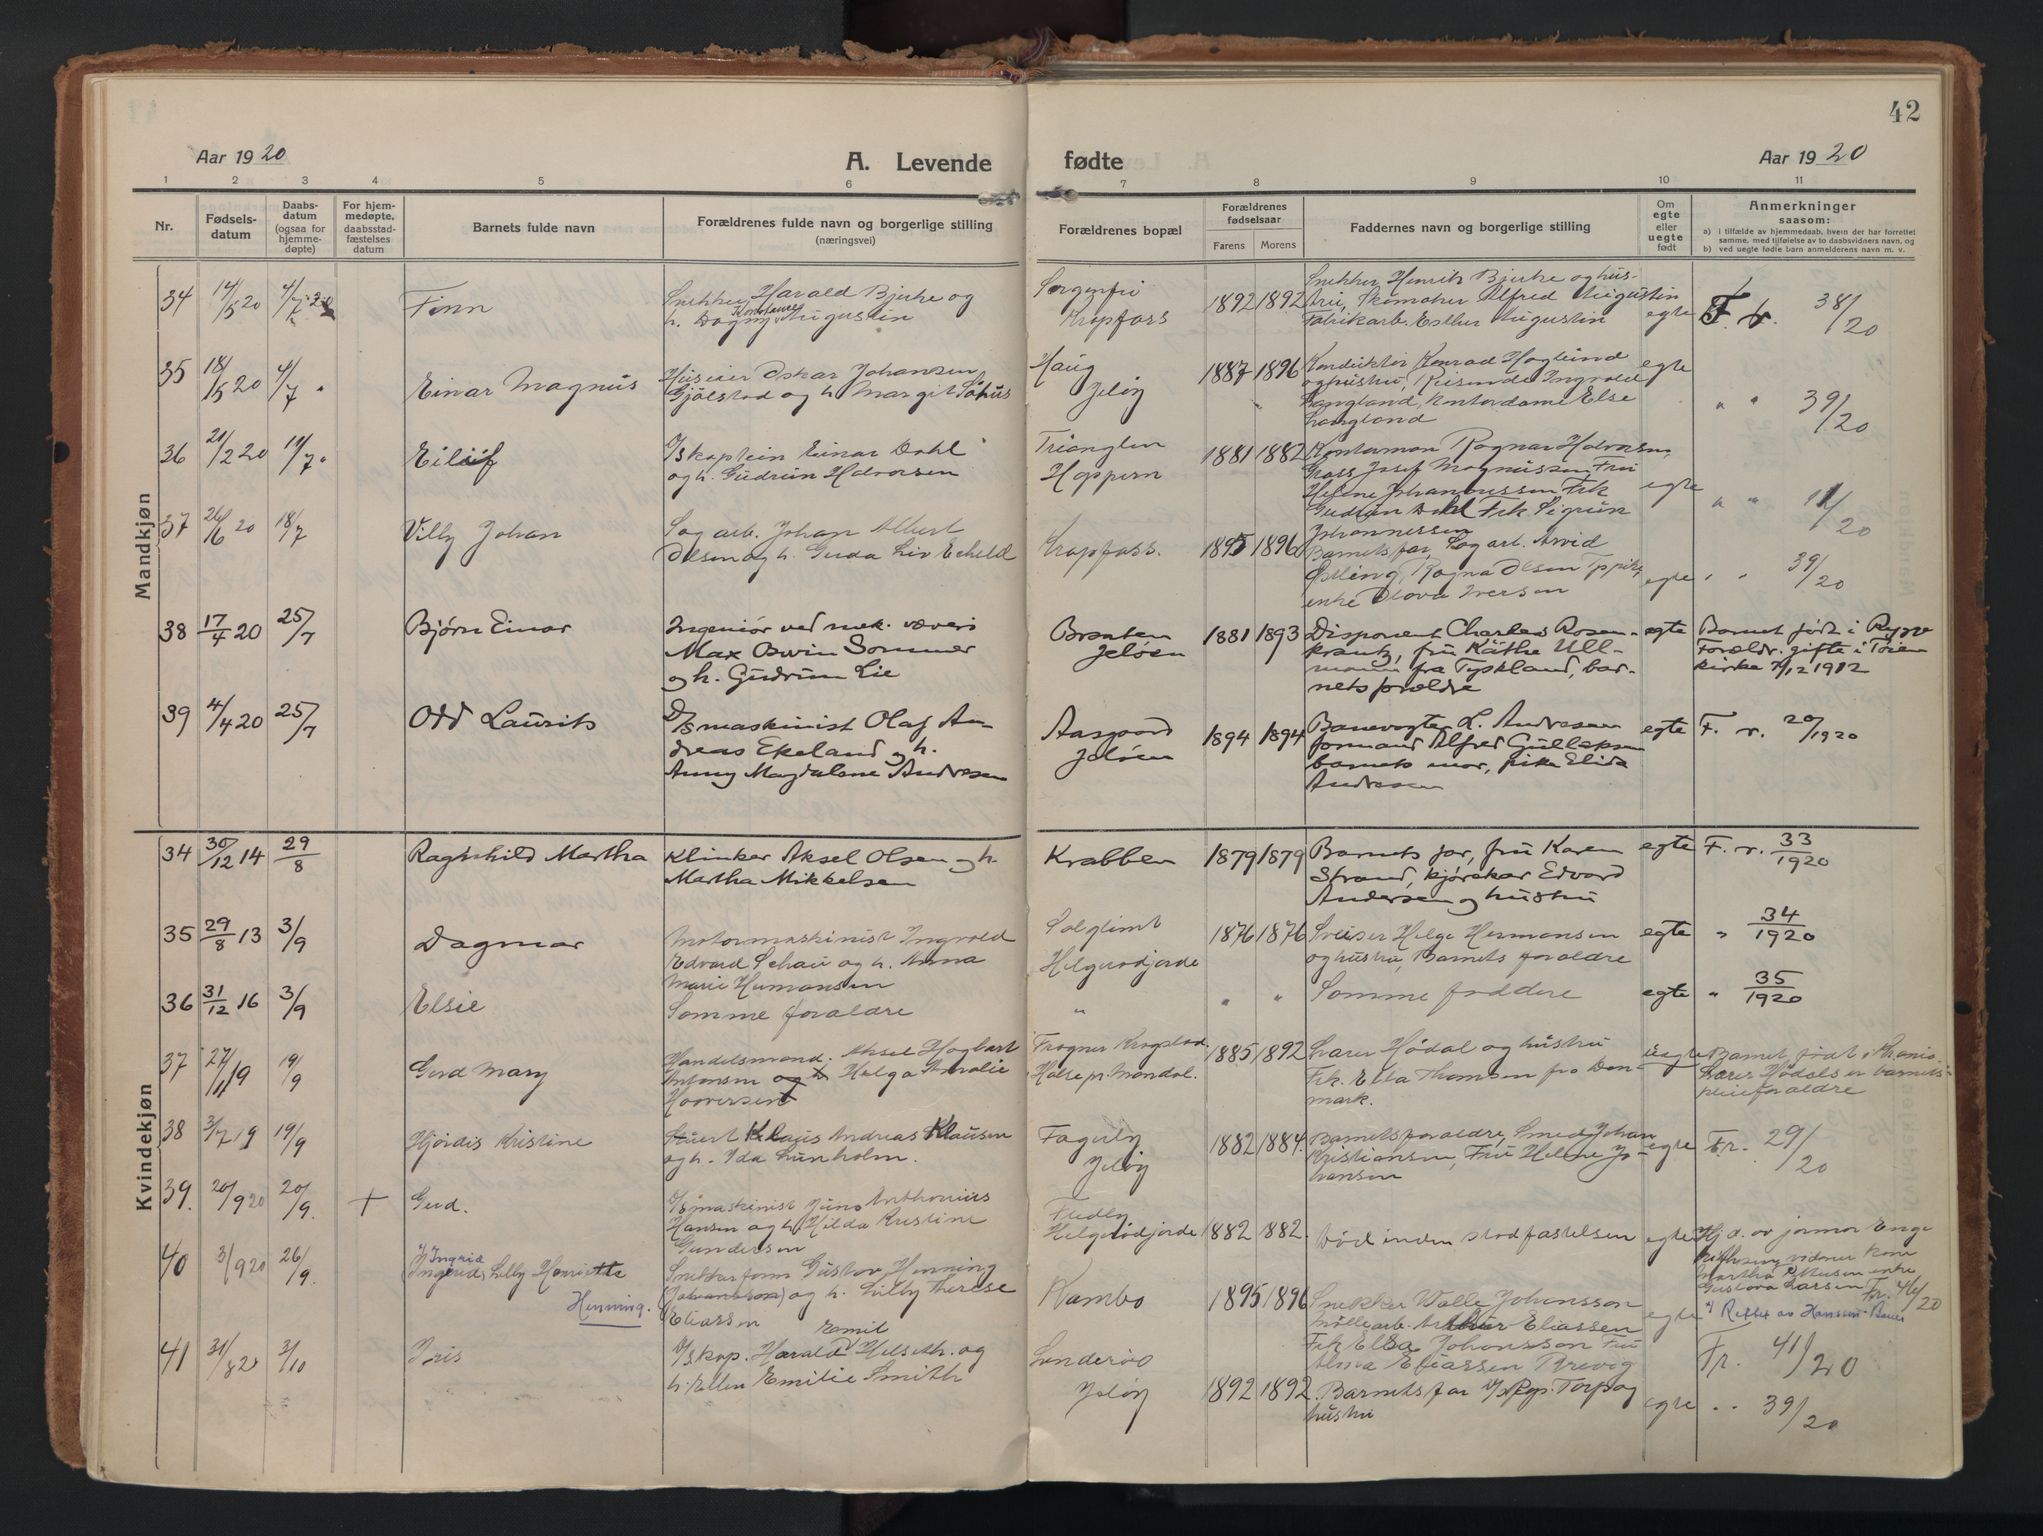 42
Aar 1920
A. Levende fødte
Aar 1920
1 2 3 4 5 6 7 8 9 10 11
Nr.
Fødsels-
datum
Daabs-
datum
(ogsaa for
hjemme-
døpte)
For hjem-
medøpte,
daabsstad-
fæstelses
datum
Barnets fulde navn
Forældrenes fulde navn og borgerlige stilling
(næringsvei)
Forældrenes bopæl
Forældrenes
fødselsaar
Farens Morens
Faddernes navn og borgerlige stilling
Om
egte
eller
uegte
født
Anmerkninger
saasom:
a) i tilfælde av hjemmedaab, hvem der har forrettet
samme, med tilføielse av to daabsvidners navn, og
b) ved uegte fødte barn anmelderens navn m. v.
Mandkjøn
34 14/5 20 4/7 20 Finn
Snekker Harald Bjerke og
h. Dagny Konstance Augustin
Sorgenfri
Krapfoss
1892 1892
Snekker Henrik Bjerke og hus-
tru, Skimaker Alfred Augustin
Fabrikarb. Esther Augustin
egte F. r. 38/20
35 18/5 20 4/7 " Einar Magnus
Huseier Oskar Johansen
Gjølstad og h. Margit
Haug
Jeløy
1887 1896
Konduktør Konrad Hoglund
og hustru, Reisende Ingvald
Langland, Kontordame Else
Langland
egte " " 39/20
36 21/2 20 11/7 " Eiliif
I/s kaptein Einar Dahl
og h. Gudrun Halvorsen
Trianglen
Hoppern
1881 1882
Kontorman Ragnar Halvorsen,
Gross. Josef Magnussen Fru
Helene Johannessen Frk
Gudrun Dahl Frk. Sigrun
Johannessen
egte " " 11/20
37 26/6 20 18/7 Villy Johan
Sagarb. Johan Albert
Olsen og h. Gerda Liv Echeld
Krapfoss.
1895 1896
Barnets far, Sagarb. Arvid
Østling, Ragna Olsen
enke Olava Iversen
egte " " 39/20
38 17/4 20 25/7 Bjørn Einar
Ingeniør ved mek. væveri
Max Sommer
og h. Gudrun Lie
Braaten
Jeløen
1881 1893
Disponent Charles Rosen-
krantz, fru Käthe Ull-
mann fra Tyskland, bar-
nets forældre
egte Barnet født i Rygge
Forældr. gifte i Tøien
kirke 7/12 1912
39 4/4 20 25/7 Odd Laurits
I/s maskinist Olaf An-
dreas Ekeland og h.
Anny Magdalene Andresen
Aasgaard
Jeløen
1894 1894
Banevogter L. Andresen
formand Alfred Gulliksen
barnets mor, pike Elida
Andresen
egte F. r. 20/1920
Kvindekjøn
34 30/12 14 29/8 Ragnhild Martha
Klinker Aksel Olsen og h.
Martha Mikkelsen
Krabben
1879 1879
Barnets far, fru Karen
Strand, kjørekar Edvard
Andersen og hustru
egte F. r. 33/1920
35 29/8 13 3/9 Dagmar
Motormaskinist Ingvald
Edvard Schau og h. Anna
Marie Hermansen
Solglimt
Helgerødjorde
1876 1876
Sveiser Helge Hermansen
og hustru, Barnets forældre
egte " 34/1920
36 31/12 16 3/9 Elsie
Samme forældre
" " "
Samme faddere
egte " 35/1920
37 27/11 19 19/9 Gerd Mary
Handelsmand Aksel Hagbart
Antonsen og Helga Amalie
Haaversen
Frogner Krogstad.
Halse pr Mandal.
1885 1892
Lærer Hødal og hustru
Frk. Elta Thomsen fra Dan-
mark.
uegte Barnet født i Kr.ania.
Lærer Hødals er barnets
pleieforældre
38 3/7 19 19/9 Hjørdis Kristine
Klaus Andreas Klausen
og h. Ida Lunholm.
Fagerly
Jeløy
1882 1884.
Barnets forældre, Smed Johan
Kristiansen, Fru Helene Jo-
hansen
egte Fr. 29/20
39. 20/9 20 20/9. + Gerd.
I/s maskinist Juns Anthonius
Hansen og h. Hilda Kristine
Gundersen
Fredly
Helgerødjorde
1882 1882.
Død inden stadfæstelsen
egte Hj. d. av jormor Enge
vidner kone
Martha
Gustava Larsen
40 3/9 20 26/9. Ingrid, Lilly Henriette
Ingrid
Henning.
Snekkerform Gustav Henning
(Johansson) og h. Lilly Therese
Eliassen
Kambo
1895 1896
Snekker Valle Johansson
Møllearb. Arthur Eliassen
Frk Elsa Johansson Fru
Alma Eliassen Brevig
egte Fr. 46/20
41 31/8 20 3/10 Iris
I/s kap. Harald Emil Helseth. og
h. Ellen Emilie Smith
Sanderød
Jeløy
1892 1892.
Barnets far Torp og
hustru
egte Fr. 41/20
" " 39/20